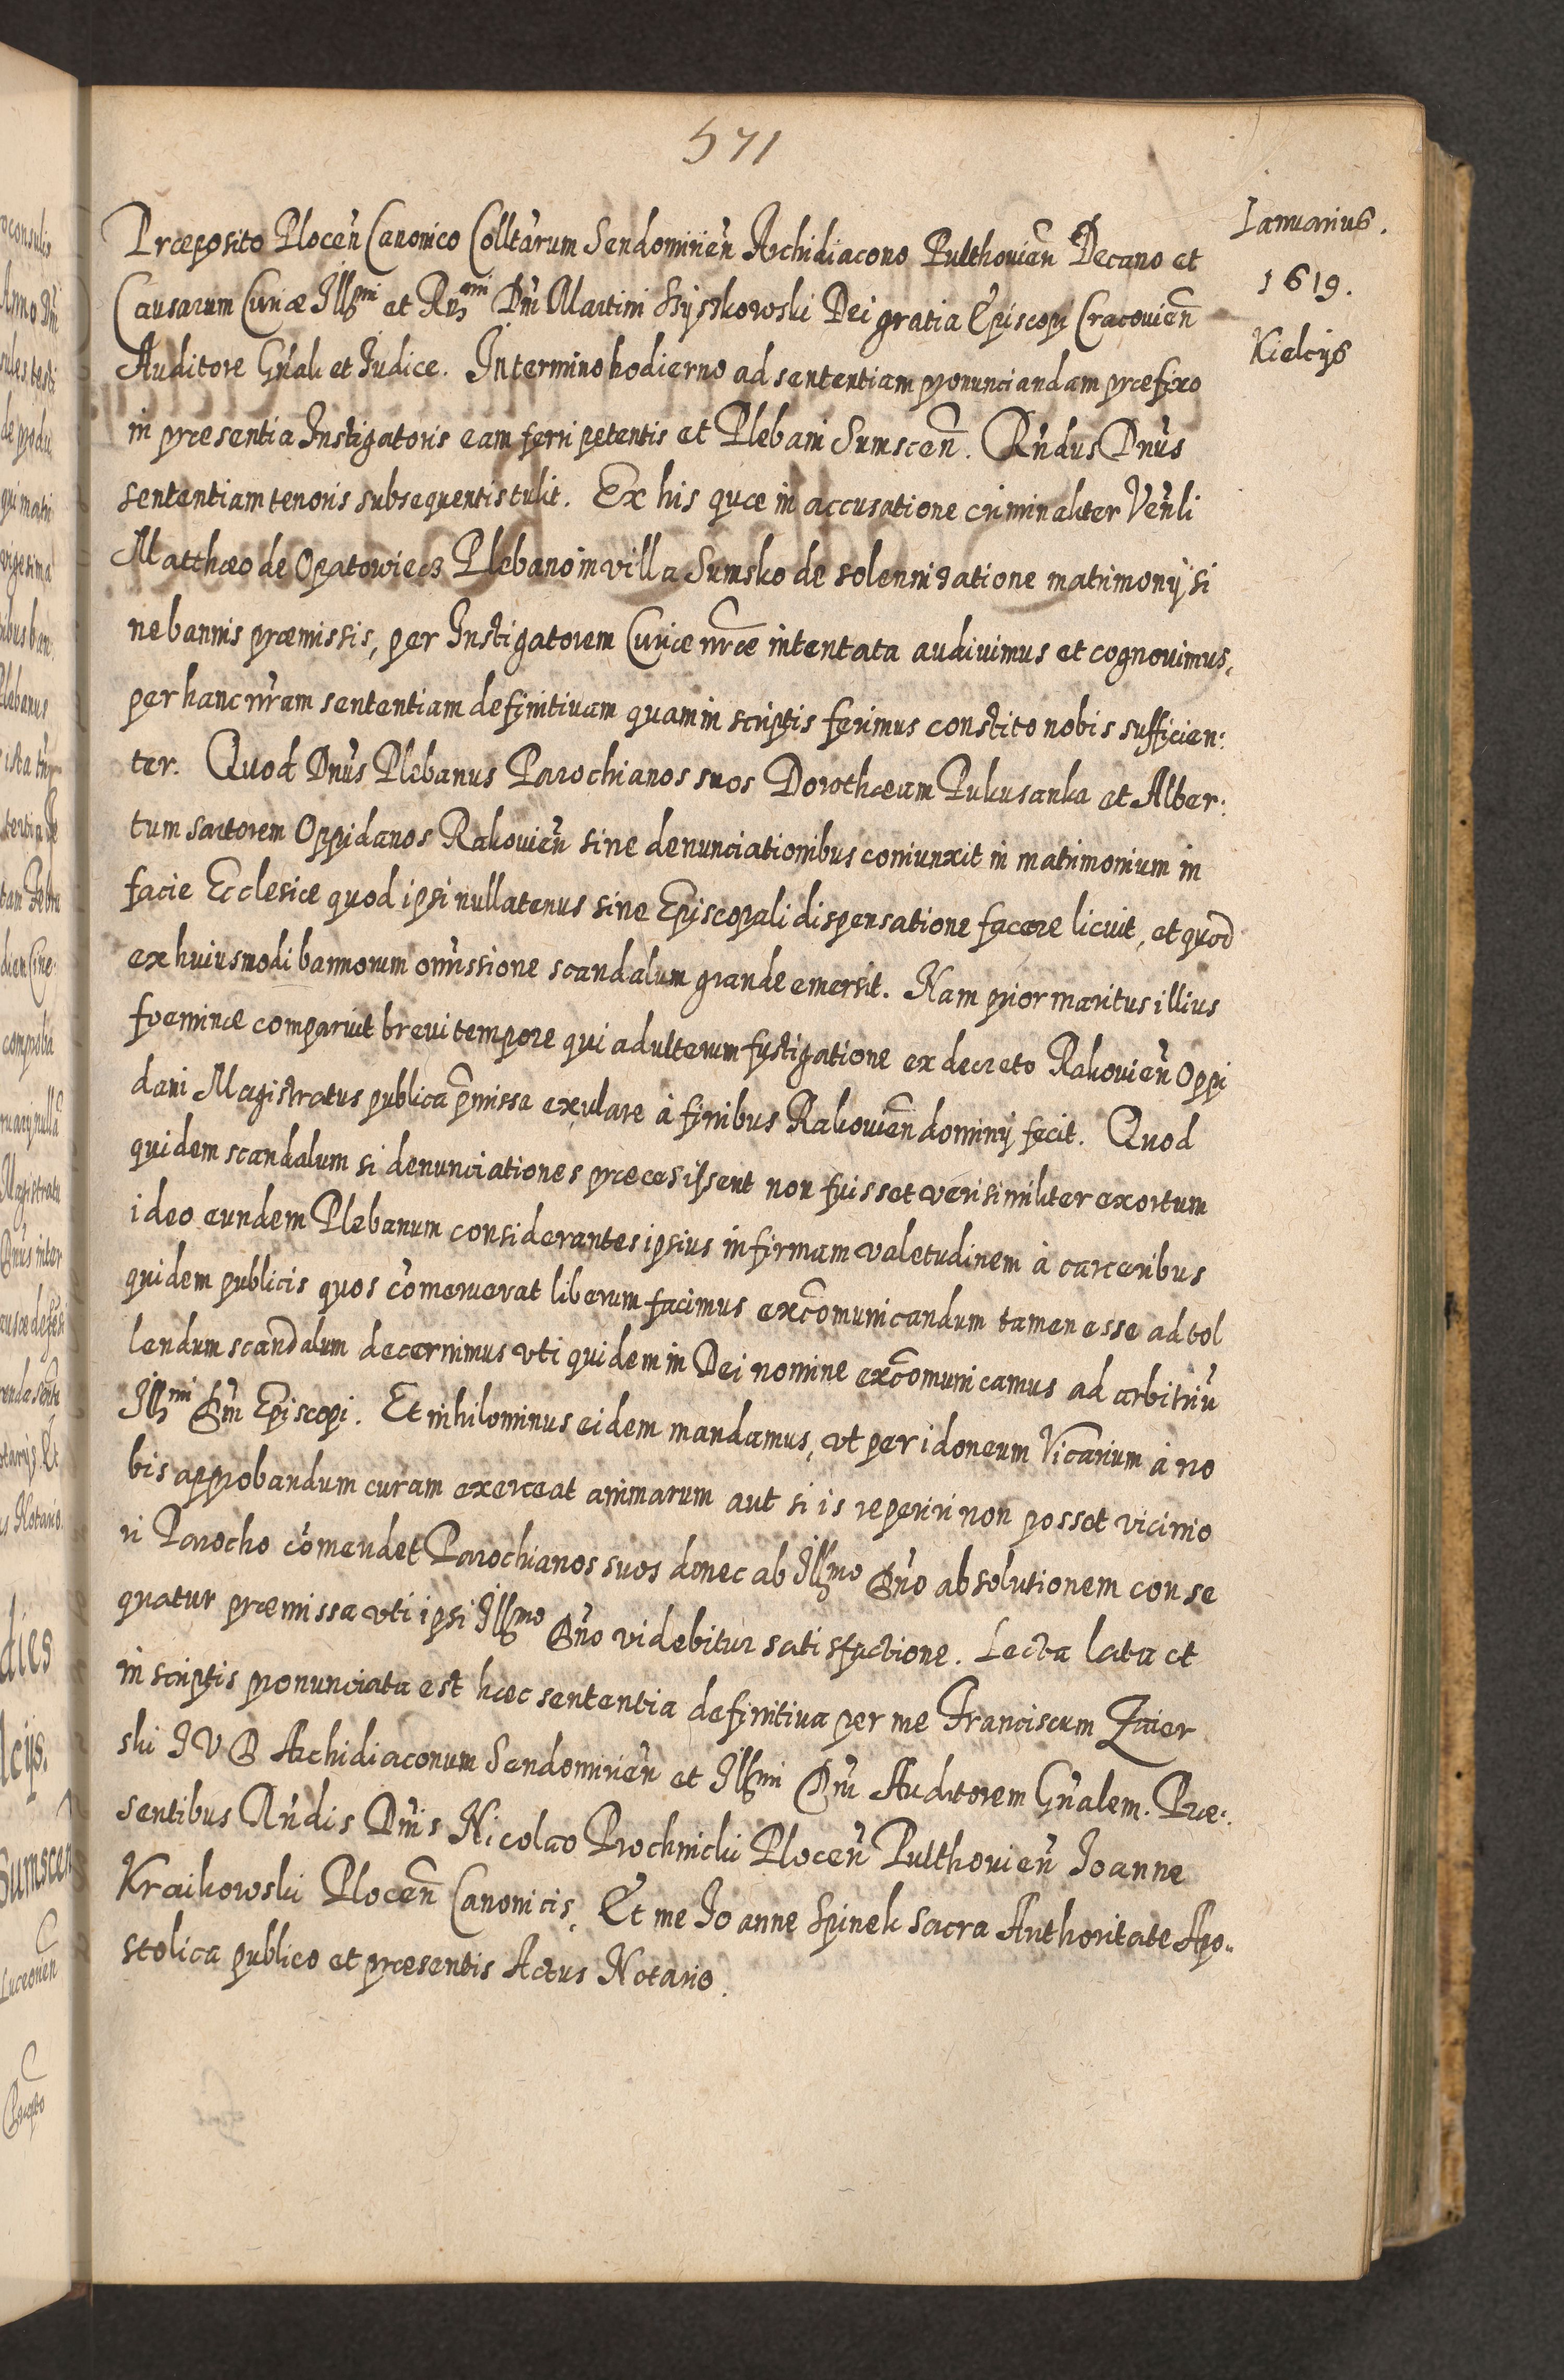 571
Ianuarius.
1619.
Kielcijs
Præposito Plocen̄ Canonico Colltarum Sendomirien̄ Archidiacono Pulthovien̄ Decano et
Causarum Curiæ Illmi et Rndmi Dni Martini Szyszkowski Dei gratia Episcopi Cracovien̄
Auditore Gn̄ali et Iudice. In termino hodierno ad sententiam pronunciandam præfixo
in præsentia Instigatoris eam ferri petentis et Plebani Sumscen̄. Rn̄dus Dnus
sententiam tenoris subsequentis tulit. Ex his quæ in accusatione criminaliter Ven̄li
Matthæo de Opatowiecz Plebano in villa Sumsko de solennizatione matrimonij si
ne bannis præmissis, per Instigatorem Curiæ nr̄æ intentata audivimus et cognovimus,
per hanc nr̄am sententiam definitivam quam in scriptis ferimus constito nobis sufficien:
ter. Quod Dnus Plebanus Parochianos suos Dorothæam Pukusanka et Alber:
tum sartorem Oppidanos Rakovien̄ sine denunciationibus coniunxit in matrimonium in
facie Ecclesiæ quod ipsi nullatenus sine Episcopali dispensatione facere licuit, et quod
ex huiusmodi bannorum omissione scandalum grande emersit. Nam prior maritus illius
foeminæ comparuit brevi tempore qui adulterum fustigatione ex decreto Rakovien̄ Oppi
dani Magistratus publica p̄missa exulare à finibus Rakovien̄ dominij fecit. Quod
quidem scandalum si denunciationes præcessissent non fuisset verisimiliter exortum
ideo eundem Plebanum considerantes ipsius infirmam valetudinem à carceribus
quidem publicis quos co̅meruerat liberum facimus exco̅municandum tamen esse ad tol
lendum scandalum decernimus vti quidem in Dei nomine exco̅municamus ad arbitriū
Illmi Dni Episcopi. Et nihilominus eidem mandamus, vt per idoneum Vicarium à no
bis approbandum curam exerceat animarum aut si is reperiri non posset vicinio
ri Parocho co̅mendet Parochianos suos donec ab Illmo Dn̄o absolutionem conse
quatur præmissa vti ipsi Illmo Dn̄o videbitur satisfactione. Lecta lata et
in scriptis pronunciata est hæc sententia definitiva per me Franciscum Zaier
ski I V D Archidiaconum Sendomirien̄ et Illmi Dni Auditorem Gn̄alem. Præ:
sentibus Rn̄dis Dnis Nicolao Prochnicki Plocen̄ Pulthovien̄ Ioanne
Kraikowski Plocen̄ Canonicis, Et me Ioanne Spinek Sacra Authoritate Apo„
stolica publico et præsentis Actus Notario.